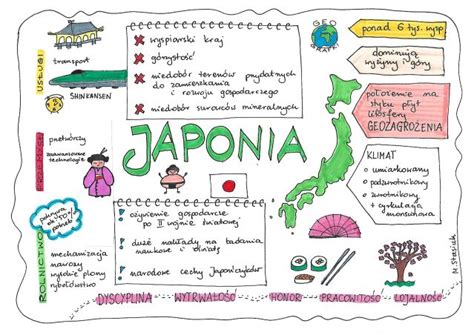 USŁUGI
transport
SHINKANSEN
wyspiarski kraj
górzystość
niedobór terenów przydatnych
do zamieszkania
i rozwoju gospodarczego
niedobór surowców mineralnych
GEO
GRAFIA
ponad 6 tys. wysp
dominują
wyżyny i góry
położenie na
styku płyt
litosfery
GEOZAGROŻENIA
JAPONIA
PRZEMYSŁ
przetwórczy
zaawansowane
technologie
KLIMAT
umiarkowany
podzwrotnikowy
zwrotnikowy
+ cyrkulacja
monsunowa
ROLNICTWO
mechanizacja
nawozy
wysokie plony
rybołówstwo
ożywienie gospodarcze
po II wojnie światowej
duże nakłady na badania
naukowe i oświatę
narodowe cechy Japończyków
DYSCYPLINA WYTRWAŁOŚĆ HONOR PRACOWITOŚĆ LOJALNOŚĆ
M. Stasiak